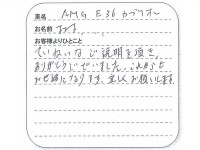 車名 AMG E36 カブリオレ
お名前
お客様よりひとこと
ていねいな、ご説明を頂き、
ありがとうございました。これからも
お世話になりますが、宜しくお願いします。